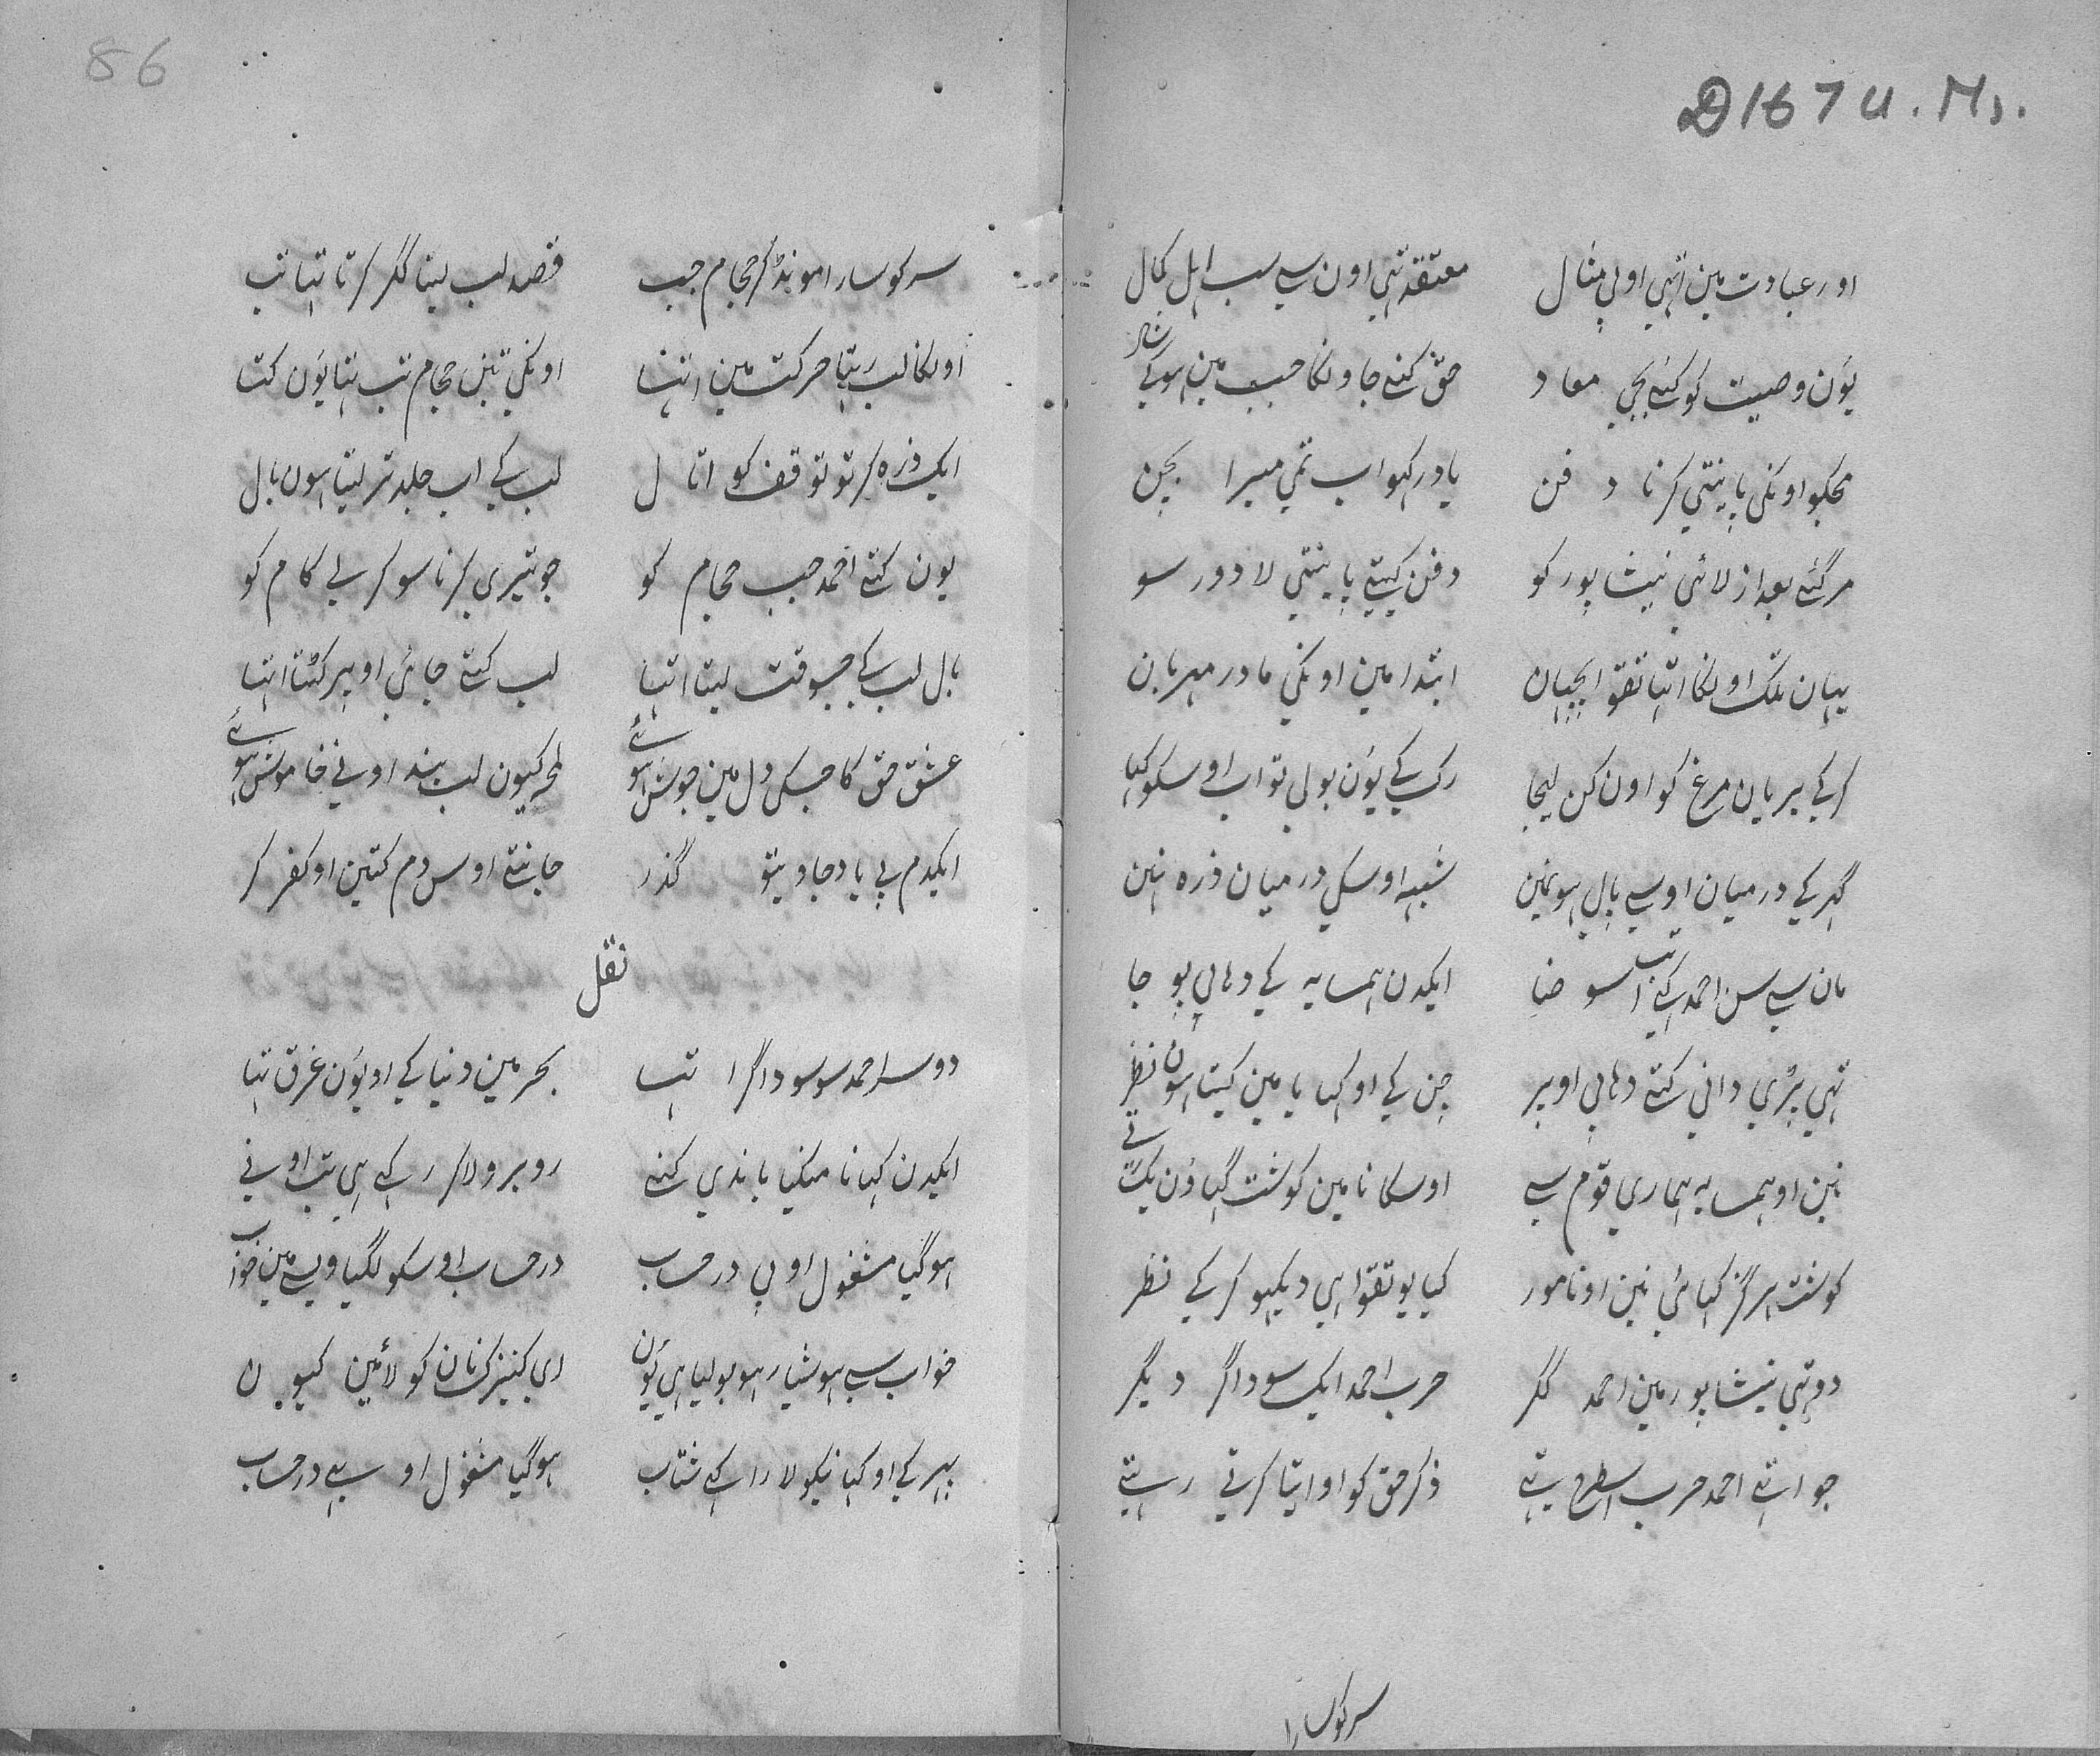 D167 U. Ms.
اور عبادت مین اتہی اوبی مثال معتقد تہی اون سے سب اہل کمال
یون وصیت کو کئے معاد حق کنے جاونگا جب مین ہوکے شاد
مجکو اونکی پاینتی کرنا دفن یادرکہو اب تمی میرا بچن
مرگئے بعد از لائی نیشاپور کو دفن کیتے پاینتی لا دور سو
یہان تلک اونکا اتہا تقوا ابچہان ابتدا مین اونکی مادر مہربان
کرکے بریان مرغ کو اون کن لیجا رک کے یون بولی تو اب اوسکو کہا
گہر کے درمیان اوسے پالی ہونمین شبہہ اوسکی درمیان ذرہ نہین
مان سے سن احمد کہے اسو ایکدن ہمسایہ کے دہابی پو جا
تہی پڑی دانی کتے دہابی اوپر چن کے او کہایا مین کیتا ہون نظر
نہین او ہمسایہ ہماری قوم سے اوسکا نا مین گوشت
گوشت ہرگز کہائی نہین او نامور کیا یو تقوا ہی دیکہو کرکے نظر
دو تہی نیشاپور مین احمد گر حرب احمد ایک سوداگر دیگر
جو اتہے احمد حرب اسطرح تہے ذکر حق کو او اتنا کرتے رہتے
سرکو سارا
86
سرکو سارا مونڈ کر حجام جب قصد لب لینا گر کرتا تہا تب
اونکا لب رہتا حرکت مین اتہا اونکی تئین حجام تب تہا یون کتا
ایک ذرہ کر تو توقف کو اتال لب کے اب جلد تر لیتا ہون بال
یون کتے احمد جب حجام کو جو تیری کرنا سو کر لے کام کو
بال لب کے جسوقت لیتا اتہا لب کتے جائی او پر کٹتا اتہا
عشق حق کا جسکی دل مین جوش ہوئے کیون لب بند اونے خاموش ہوئے
ایکدم بے یاد جاویتو گذر جانتے اوس دم کتین او کفر کر
نقل
دوسرا احمد سو سوداگر اتہا بحر مین دنیا کے او یون غرق تہا
ایکدن کہانا منگیا باندی کنے روبرو لاکر رکہی تب اونے
ہوگیا مشغول اوبی در حساب در حساب اوسکو لگیا ویسے مین خواب
خواب سے ہوشیار ہو بولیا ہی یون ای کنیزک نان کو لائین کیون
پہر کے او کہانیکو لا راکہی شتاب ہوگیا مشغول او سے در حساب